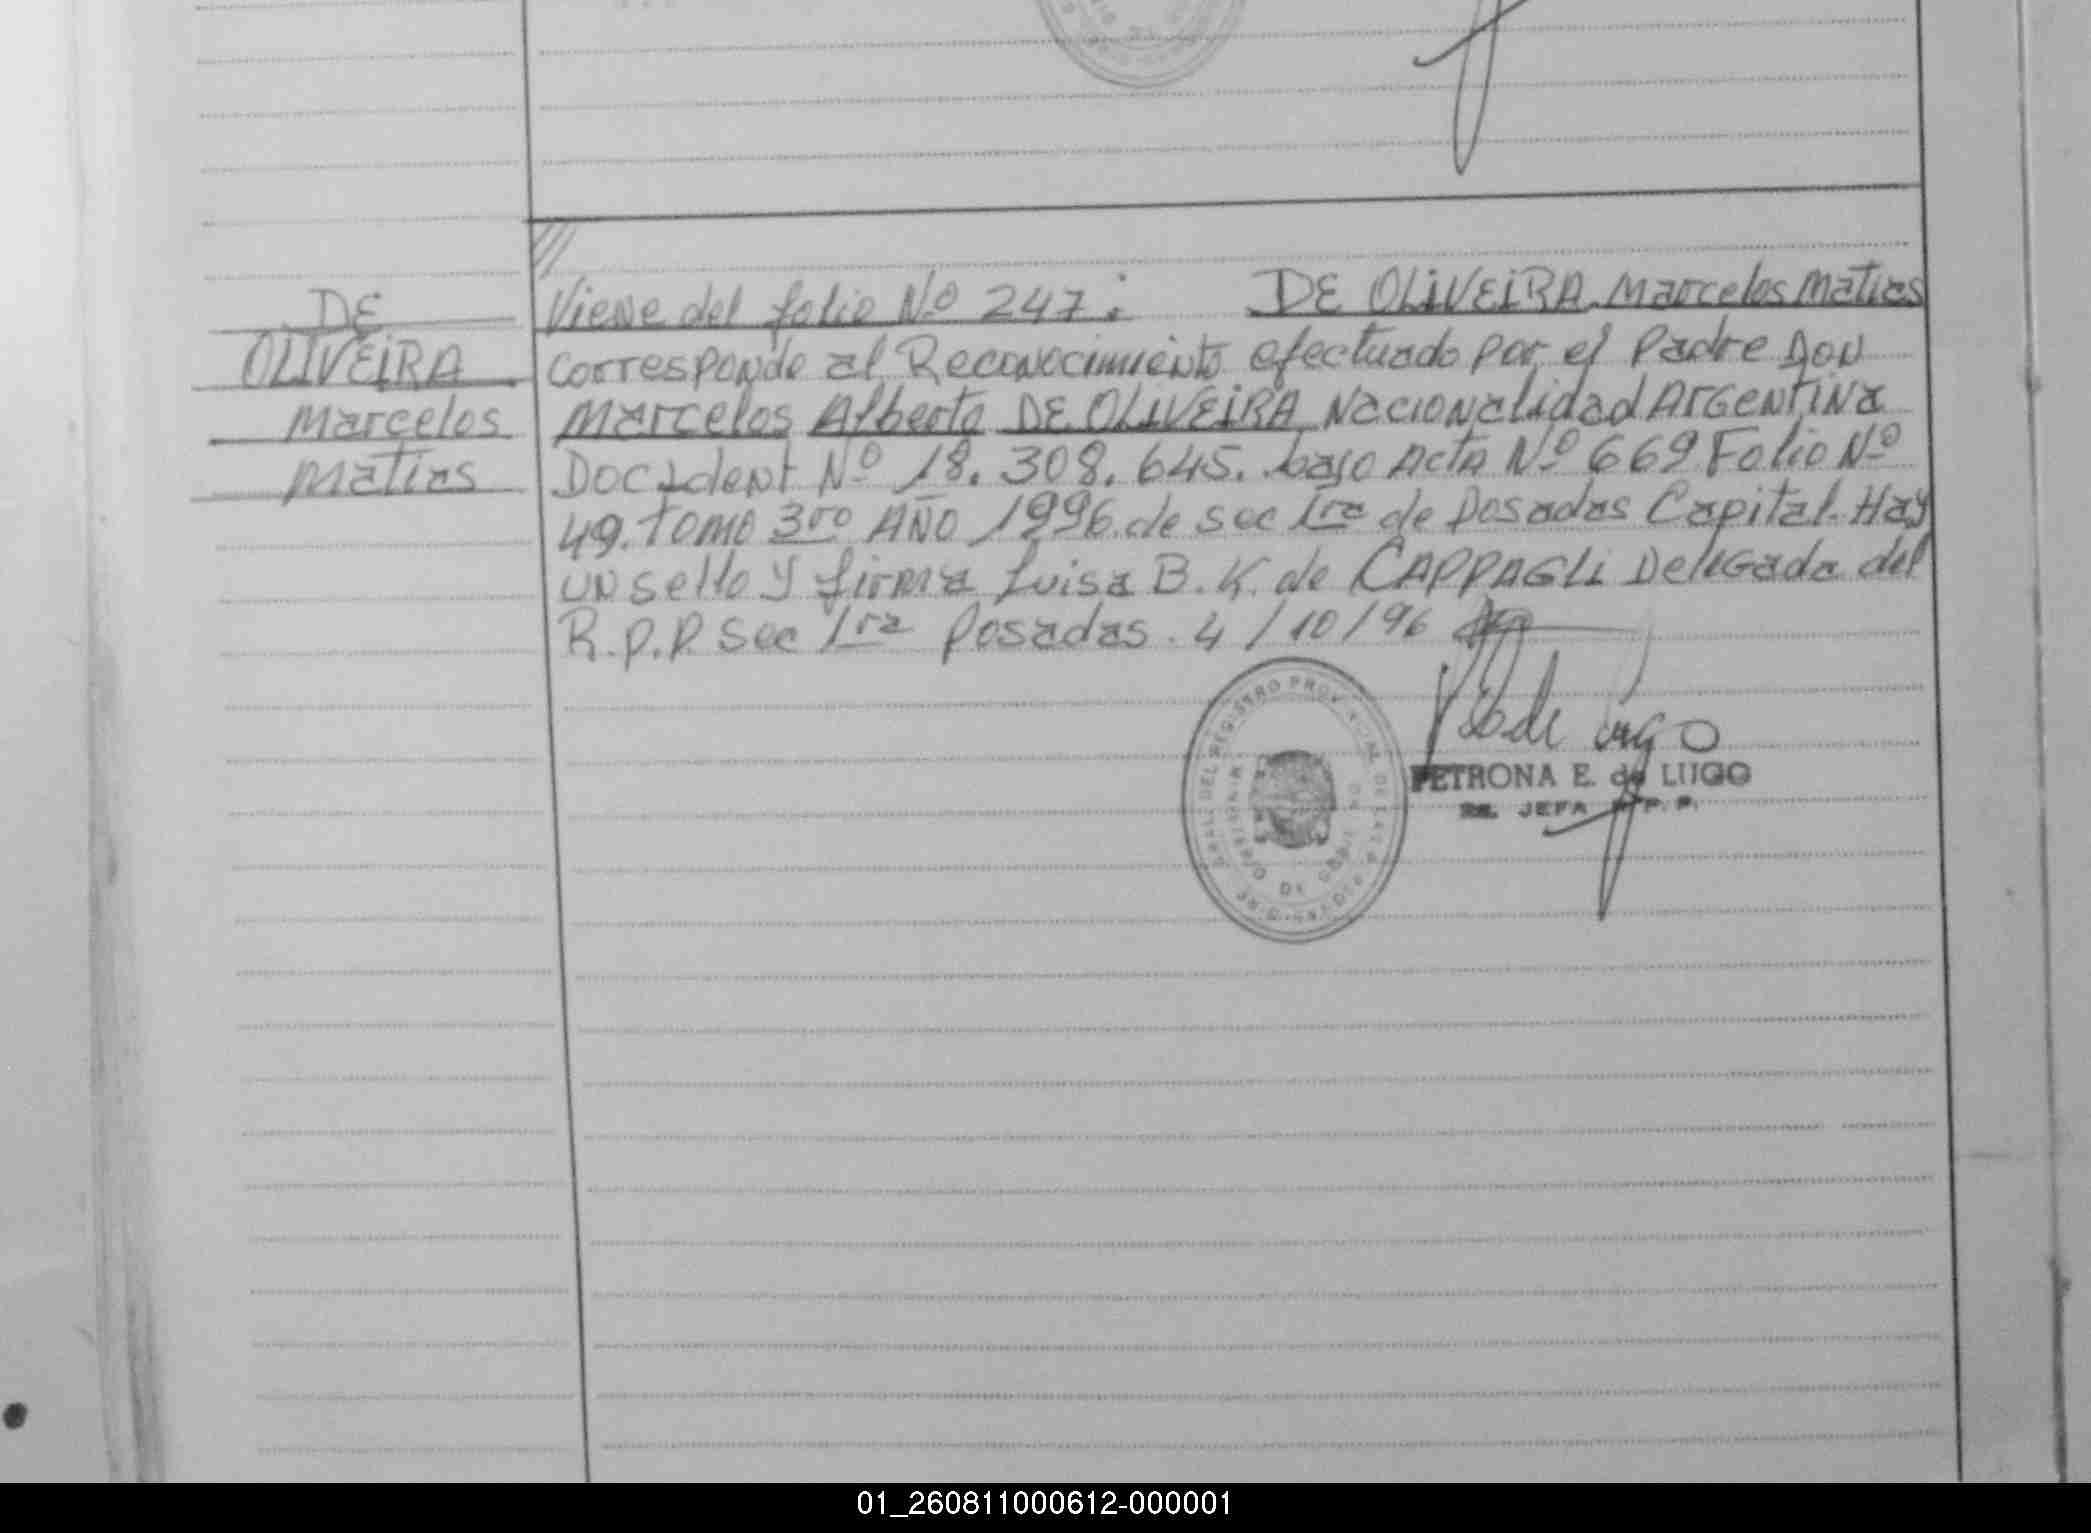 DE
OLIVEIRA
Marcelos
Matias
Viene del folio Nº 247: DE OLIVEIRA Marcelos Matias
corresponde al Reconocimiento efectuado por el Padre DON
Marcelos Alberto DE OLIVEIRA Nacionalidad ARGENTINA
DOC Ident Nº 18.308.645. bajo Acta Nº 669 Folio Nº
49. TOMO 3ro AÑO 1996. de sec 1ra de Posadas Capital. Hay
UN sello y firma Luisa B. K. de CAPPAGLI Delegada del
R.P.P. Sec 1ra Posadas. 4/10/96
DEL REGISTRO PROVINCIAL DE LAS P
DE
PETRONA E. de LUGO
JEFA R.P.P.
01_260811000612-000001